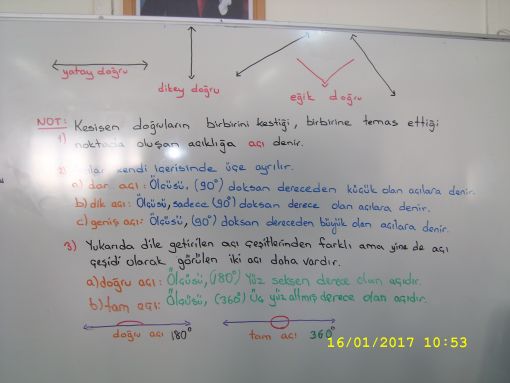 yatay doğru
dikey doğru
eğik doğru
NOT: Kesişen doğruların birbirini kestiği, birbirine temas ettiği
1) noktada oluşan açıklığa açı denir.
2) kendi içerisinde üçe ayrılır.
a) dar açı: Ölçüsü, (90°) doksan dereceden küçük olan açılara denir.
b) dik açı: Ölçüsü, sadece (90°) doksan derece olan açılara denir.
c) geniş açı: Ölçüsü, (90°) doksan dereceden büyük olan açılara denir.
3) Yukarıda dile getirilen açı çeşitlerinden farklı ama yine de açı
çeşidi olarak görülen iki açı daha vardır.
a) doğru açı: Ölçüsü, (180°) Yüz seksen derece olan açıdır.
b) tam açı: Ölçüsü, (360°) Üç yüz altmış derece olan açıdır.
doğru açı 180°
tam açı 360°
16/01/2017 10:53